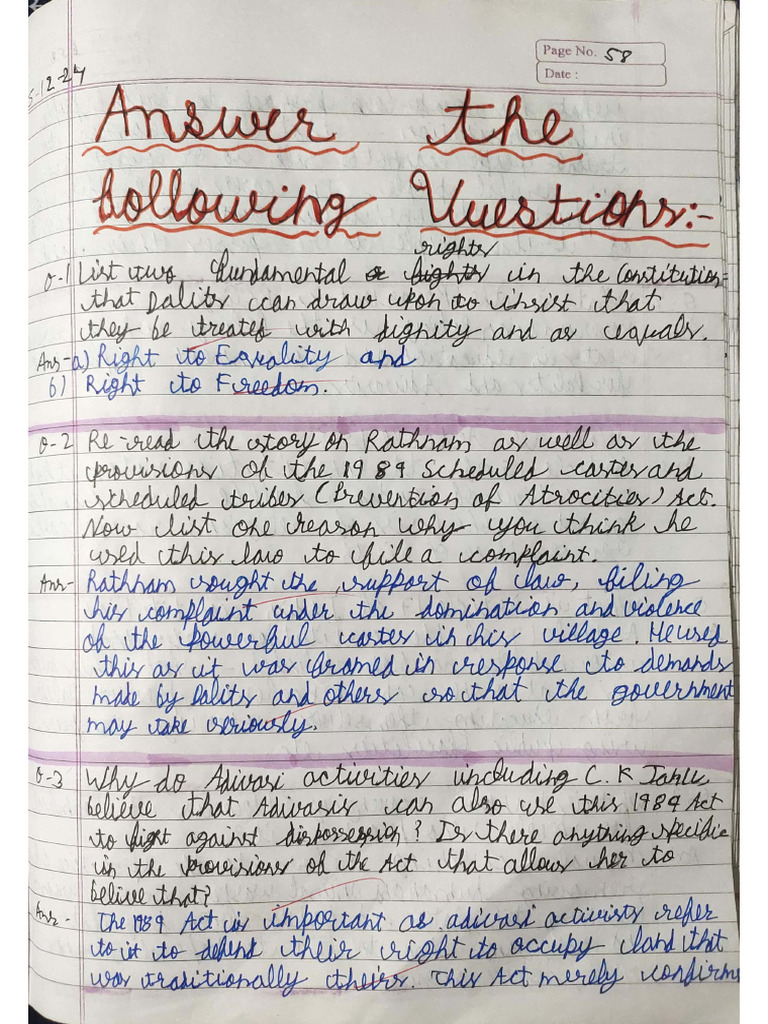 Page No. 58
Date :
5-12-24
Answer the
following Questions:-
rights
Q-1 List two fundamental in the Constitution
that Dalits can draw upon to insist that
they be treated with dignity and as equals.
Ans- a) Right to Equality and
b) Right to Freedom.
Q-2 Re-read the story on Rathnam as well as the
provisions of the 1989 Scheduled castes and
scheduled tribes (Prevention of Atrocities) Act.
Now list one reason why you think he
used this law to file a complaint.
Ans- Rathnam sought the support of law, filing
his complaint under the domination and violence
of the powerful castes in his village. He used
this as it was framed in response to demands
made by Dalits and others so that the government
may take seriously.
Q-3 Why do Adivasi activities including C.K Janu
believe that Adivasis can also use this 1989 Act
to fight against dispossession? Is there anything specific
in the provisions of the Act that allows her to
belive that?
Ans- The 1989 Act is important as adivasi activists refer
to it to defend their right to occupy land that
was traditionally theirs. This Act merely confirms